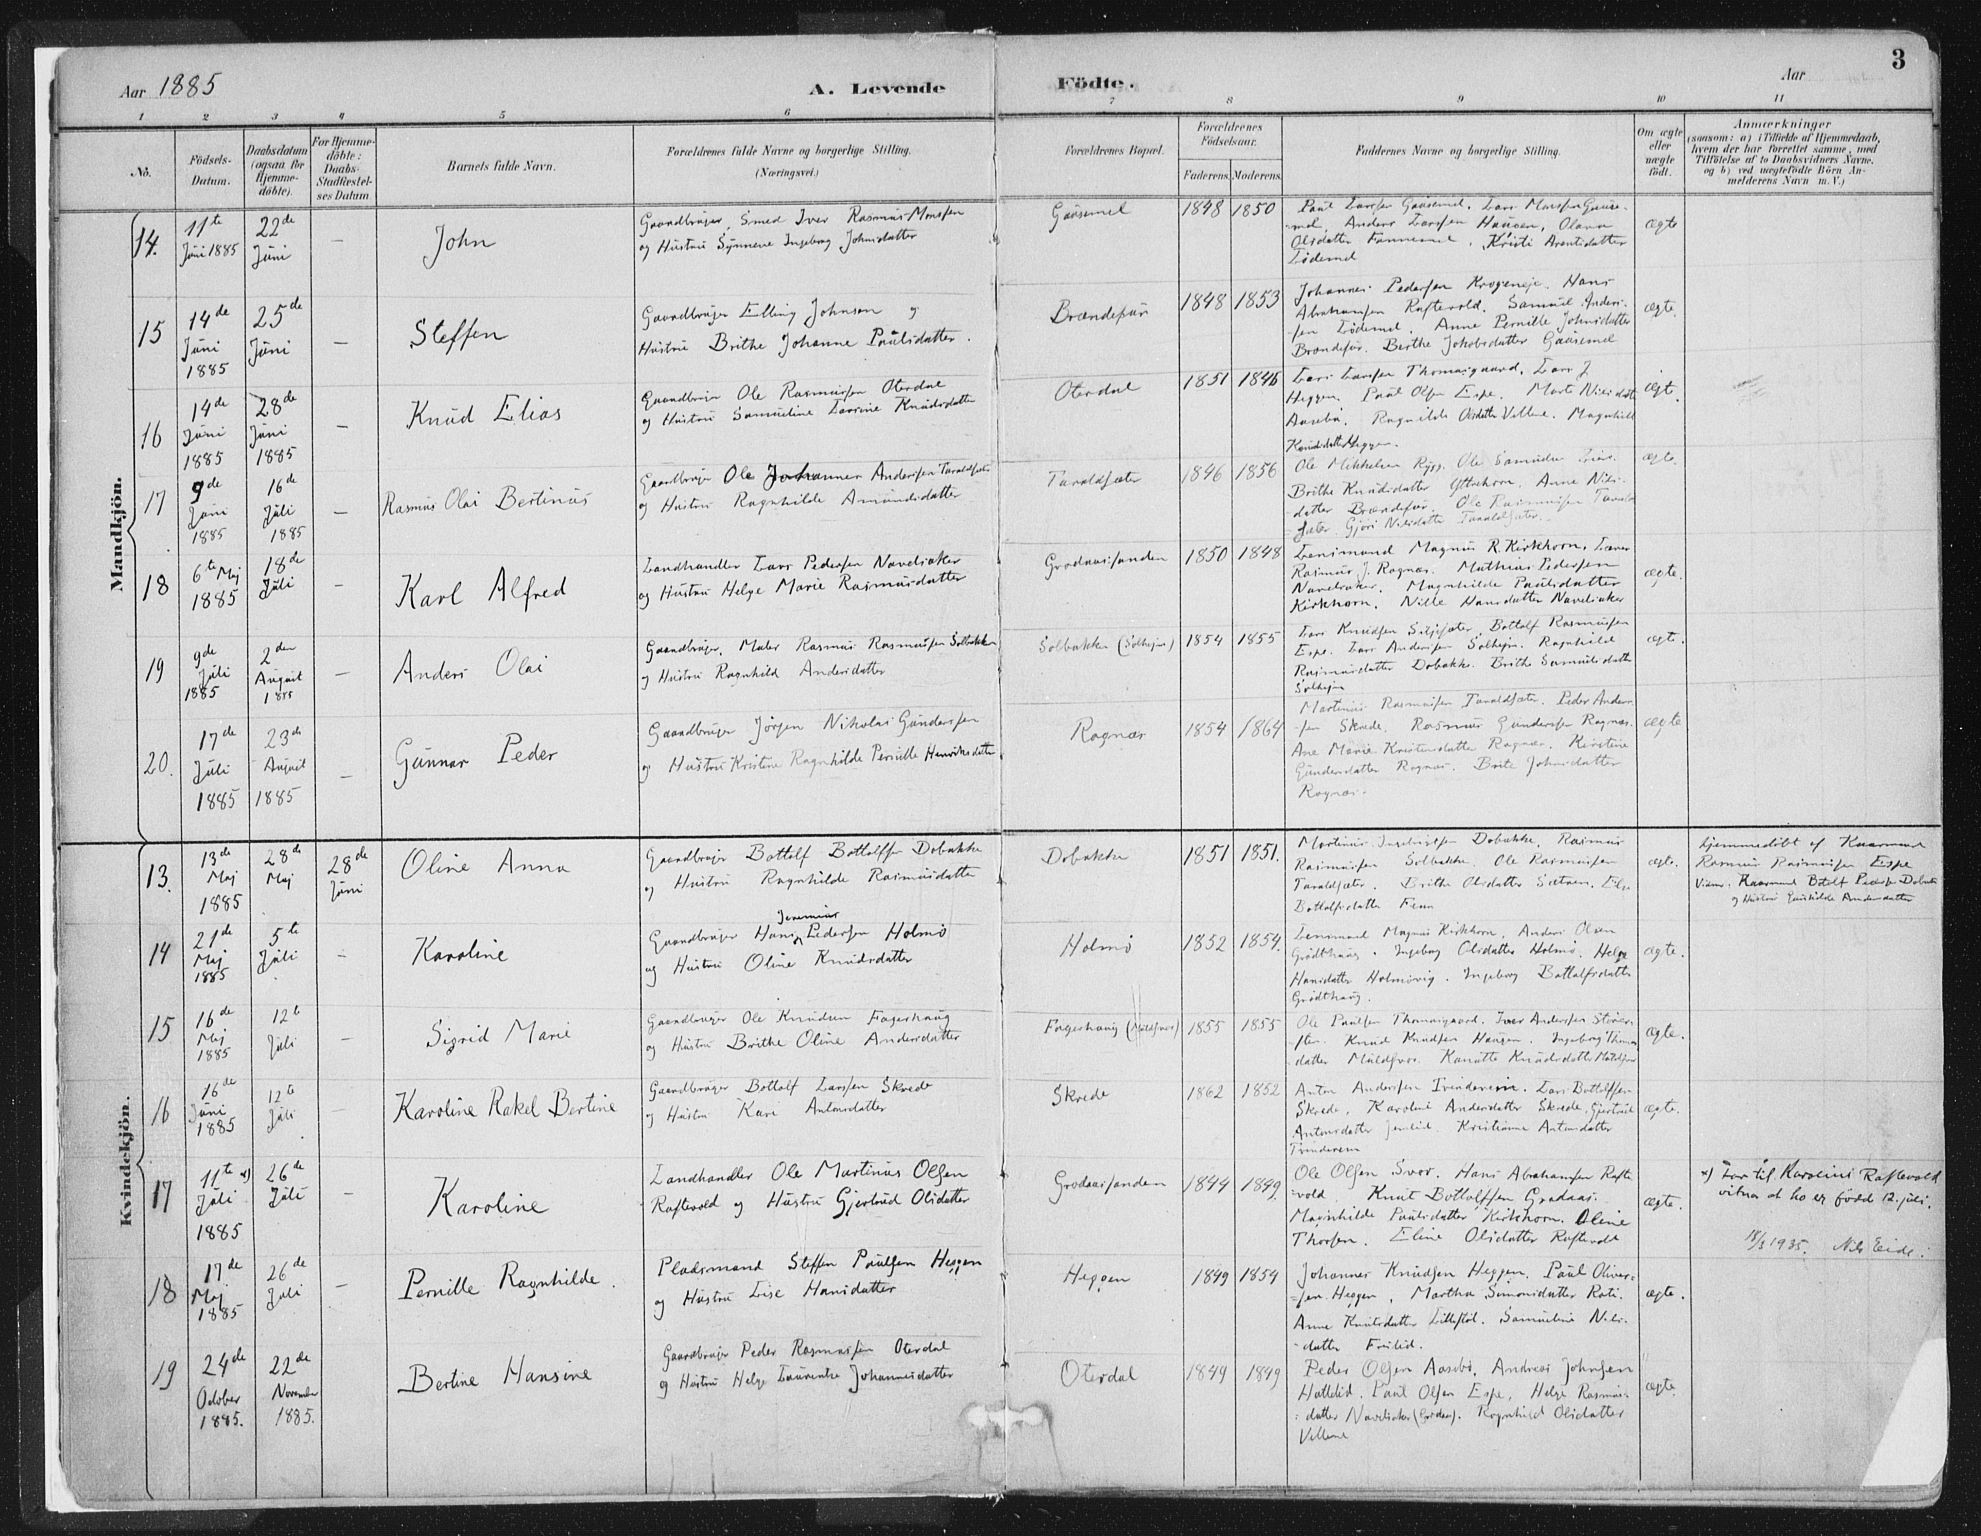 3
Aar 1885
A. Levende
Födte.
Aar
1 2 3 4 5 6 7 8 9 10 11
No.
Födsels-
Datum.
Daabsdatum
(ogsaa for
Hjemme-
döbte).
For Hjemme-
döbte:
Daabs-
Stadfæstel-
ses Datum
Barnets fulde Navn.
Forældrenes fulde Navne og borgerlige Stilling.
(Næringsvei.)
Forældrenes Bopæl.
Forældrenes
Födselsaar.
Faderens.
Moderens.
Faddernes Navne og borgerlige Stilling.
Om ægte
eller
uægte
födt.
Anmærkninger
(saasom: a) i Tilfælde af Hjemmedaab,
hvem der har forrettet samme, med
Tilföielse af to Daabsvidners Navne,
og b) ved uægtefödte Börn An-
melderens Navn m. V.)
Mandkjön.
14.
11te
Juni 1885
22de
Juni
—
John
Gaardbruger, Smed Iver Rasmus Monsen
og Hustru Synneve Ingeborg Johnsdatter
Gaasemel
1848 1850
Paul Larssen Gaasemel, Lars Monssen Gaase-
mel, Anders Larssen Haugen, Olava
Olsdatter
Kristi Arentsdatter
Lödemel
ægte
15
14de
Juni
1885
25de
Juni
—
Steffen
Gaardbruger Elling Johnsen og
Hustru Brithe Johanne Paulsdatter.
Brændefur
1848 1853
Johannes Pedersen Krogeneje. Hans
Abrahamsen Raftevold. Samuel Anders-
sen Lödemel. Anne Pernille Johnsdatter
Brændefur. Berthe Jakobsdatter Gaasemel
ægte.
16
14de
Juni
1885
28de
Juni
1885
—
Knud Elias
Gaardbruger Ole Rasmussen Oterdal
og Hustru Samueline Larsine Knudsdatter
Oterdal
1851 1846
Lars Larssen Thomasgaard. Lars J
Heggen. Paul Olsen Espe. Marte Nilsdatter
Aasebö. Ragnhilde Olsdatter Vellene. Magnhild
Knudsdatter Heggen.
ægte.
17
9de
Juni
1885
16de
Juli
1885
—
Rasmus Olai Bertinus
Gaardbruger Ole Johannes Andersen Taraldsæter
og Hustru Ragnhilde Amundsdatter
Taraldsæter
1846 1856
Ole Mikkelsen Rygg. Ole Samuelsen
Brithe Knudsdatter Yttrehorn. Anne Nils-
datter Brændefur. Ole Rasmussen Tarald-
sæter. Gjöri Nilsdatter Taraldsæter.
ægte.
18
6te Maj
1885
18de
Juli
—
Karl Alfred
Landhandler Lars Pedersen Navelsaker
og Hustru Helge Marie Rasmusdatter
Grodaassanden
1850 1848
Lensmand Magnus R. Kirkhorn. Lærer
Rasmus J. Rognæs. Mathias Pedersen
Navelsaker. Magnhilde Paulsdatter
Kirkhorn. Nille Hansdatter Navelsaker
ægte.
19
9de
Juli
1885
2den
August
1885
—
Anders Olai
Gaardbruger, Maler Rasmus Rasmussen Solbakken
og Hustru Ragnhild Andersdatter
Solbakken (Solhejm)
1854 1855
Lars Knudsen Siljesæter. Bottolf Rasmussen
Espe. Lars Andersen Solhejm. Ragnhild
Rasmusdatter Dobakke. Brithe Samuelsdatter
Solhejm
ægte.
20.
17de
Juli
1885
23de
August
1885
—
Gunnar Peder
Gaardbruger Jörgen Nikolai Gunderssen
og Hustru Kristine Ragnhilde Pernille Henriksdatter
Rognæs
1854 1864
Martinus Rasmussen Taraldsæter. Peder Anders-
sen Skrede. Rasmus Gunderssen Rognæs.
Ane Marie Kristensdatter Rognæs. Kirstine
Gundersdatter Rognæs. Brite Johnsdatter
Rognæs.
ægte
Kvindekjön.
13.
13de
Maj
1885
28de
Maj
28de
Juni
Oline Anna
Gaardbruger Bottolf Bottolfsen Dobakke
og Hustru Ragnhilde Rasmusdatter
Dobakke
1851 1851.
Martinus Ingebrigtsen Dobakke. Rasmus
Rasmussen Solbakke. Ole Rasmussen
Taraldsæter. Brithe Olsdatter Sætren. Else
Bottolfsdatter
ægte.
hjemmedöbt af Kaarmand
Rasmus Rasmussen Espe
Vidner. Kaarmand Botolf Pederse Dobakke
og Hustru Gunhilde Andersdatter
14
21de
Maj
1885
5te
Juli
—
Karoline
Jeremias
Gaardbruger Hans Pedersen Holmö
og Hustru Oline Knudsdatter
Holmö
1852 1854.
Lensmand Magnus Kirkhorn. Anders Olsen
Grödthaug. Ingeborg Olsdatter Holmö. Helge
Hansdatter Holmövig. Ingeborg Bottolfsdatter
Grödthaug.
ægte.
15
16de
Maj
1885
12te
Juli
—
Sigrid Marie
Gaardbruger Ole Knudsen Fagerhaug
og Hustru Brithe Oline Andersdatter
Fagerhaug (Muldsvor)
1855 1855
Ole Paulsen Thomasgaard. Iver Anderssen
Knud Knudsen Haugen. Ingeborg Thomas-
datter Muldsvor. Kanutte Knudsdatter Muldsvor
ægte.
16
16de
Juni
1885
12te
Juli
—
Karoline Rakel Bertine
Gaardbruger Bottolf Larssen Skrede
og Hustru Kari Antonsdatter
Skrede
1862 1852
Anton Anderssen Tvinderein. Lars Bottolfsen
Skrede. Karoline Andersdatter Skrede. Gjertrud
Antonsdatter
Kristianne Antonsdatter
Tvinderein
ægte.
17
11te x)
Juli
1885
26de
Juli
—
Karoline
Landhandler Ole Martinus Olsen
Raftevold og Hustru Gjertrud Olsdatter
Grodaassanden
1844 1849.
Ole Olsen Svor. Hans Abrahamsen Rafte-
vold. Knut Bottolfsen Grodaas.
Magnhilde Paulsdatter Kirkhorn. Oline
Thorsen. Eline Olsdatter Raftevold
ægte.
x) Far til Karoline Raftevold
vitnar at ho er född 12. juli.
18/3 1935. Nils Eide.
18
17de
Maj
1885
26de
Juli
—
Pernille Ragnhilde.
Pladsmand Steffen Paulsen Heggen
og Hustru Lise Hansdatter
Heggen
1849 1854
Johannes Knudsen Heggen. Paul Oliver-
sen Heggen. Martha Simonsdatter Roti.
Anne Knutsdatter Lillestöl. Samueline Nils-
datter Frislid.
ægte.
19
24de
October
1885.
22de
November
1885.
Bertine Hansine
Gaardbruger Peder Rasmussen Oterdal
og Hustru Helge Laurentse Johannesdatter
Oterdal
1849 1849
Peder Olsen Aasebö. Andreas Johnsen
Hattelid. Paul Olsen Espe. Helge Rasmus-
datter Navelsaker (Grodaas). Ragnhild Olsdatter
Vellene
ægte.